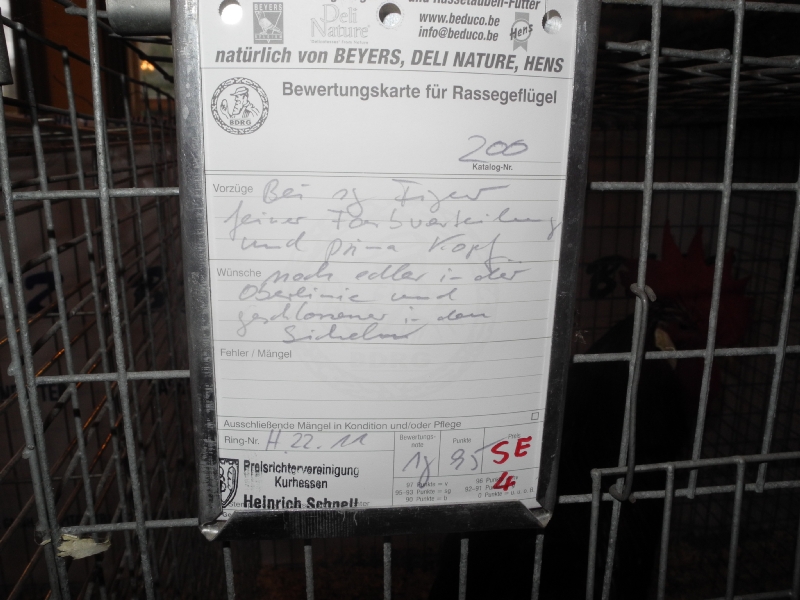 und Rassetauben-Futter
BEYERS
Deli
Nature
www.beduco.be
info@beduco.be
Hens
natürlich von BEYERS, DELI NATURE, HENS
BDRG
Bewertungskarte für Rassegeflügel
200
Katalog-Nr.
Vorzüge Bei sg Figur
feiner Farbverteilung
und prima Kopf
Wünsche noch edler in der
Oberlinie und
geschlossener in den
Sicheln
Fehler / Mängel
Ausschließende Mängel in Kondition und/oder Pflege
Ring-Nr. H. 22. 11
Bewertungs-
note
Punkte
Preis
95
SE
4
97 Punkte = v
93-95 Punkte = sg
90 Punkte = b
Preisrichtervereinigung
Kurhessen
Heinrich Schnell